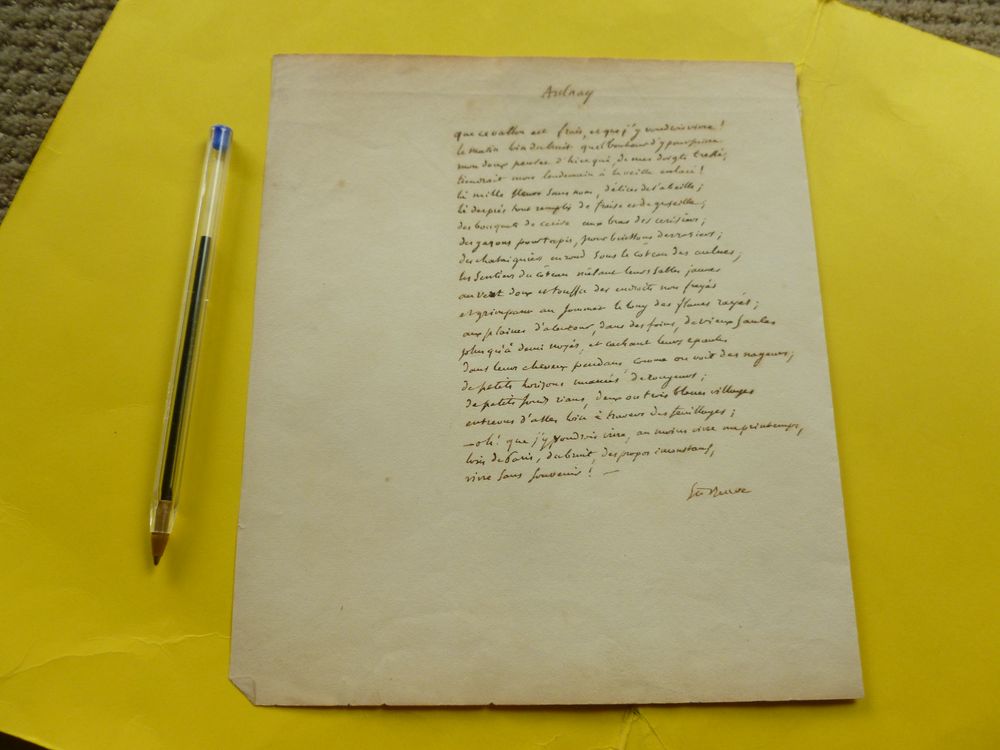 Aulnay
que ce vallon est frais, et que j'y voudrois vivre !
le matin loin du bruit quel bonheur d'y poursuivre
mon doux penser d'hier qui, de mes doigts tressé,
tiendrait mon lendemain à la veille enlacé !
là mille fleurs sans nom, délices de l'abeille ;
là des prés tout remplis de fraise et de groseille ;
des bouquets de cerise aux bras des cerisiers ;
des gazons pour tapis, pour buissons des rosiers ;
des chataigniers en rond sous le côteau des aulnes ;
les sentiers du côteau mêlant leurs sables jaunes
au vert doux et touffu des endroits non frayés
et grimpant au sommet le long des flancs rayés ;
aux plaines d'alentour, dans des foins, de vieux saules
plus qu'à demi noyés, et cachant leurs epaules
dans leurs cheveux pendans comme on voit des nageurs ;
de petits horizons nuancés de rougeurs ;
de petits fonds rians, deux ou trois blancs villages
entrevus d'assez loin à travers des feuillages ;
– oh ! que j'y voudrois vivre, au moins vivre un printemps,
loin de Paris, du bruit, des propos inconstans,
vivre sans souvenir ! —
Ste Beuve